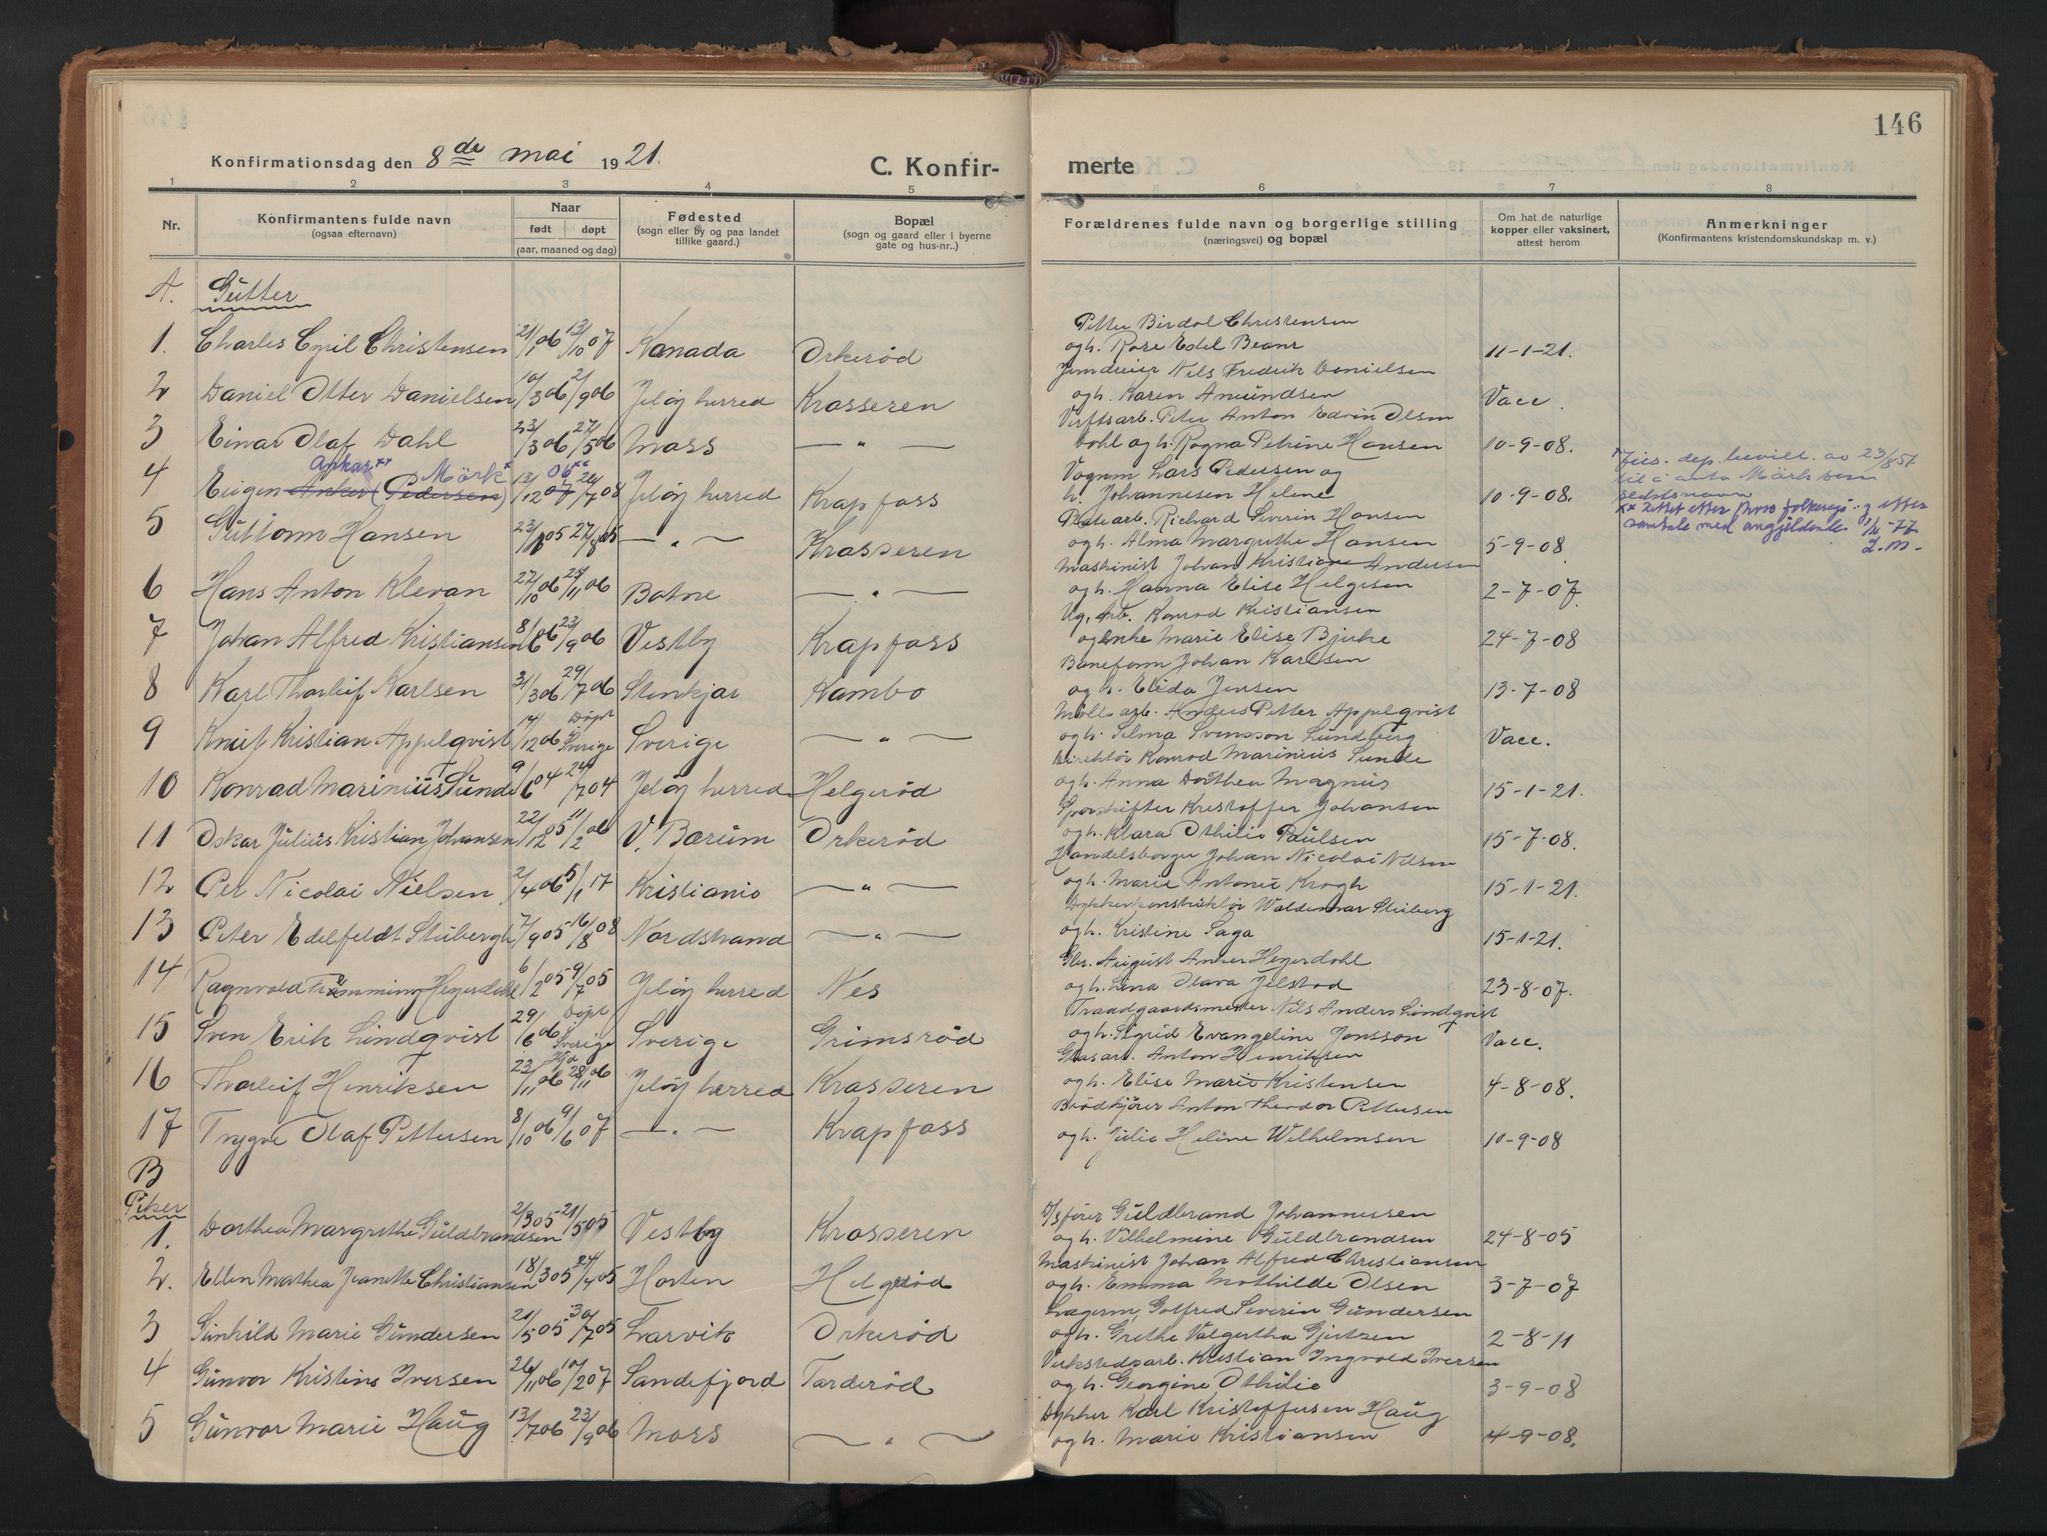 146
Konfirmationsdag den 8de mai 1921.
C. Konfir-
merte
1 2 3 4 5 6 7 8
Nr.
Konfirmantens fulde navn
(ogsaa efternavn)
Naar
født døpt
(aar, maaned og dag)
Fødested
(sogn eller by og paa landet
tillike gaard.)
Bopæl
(sogn og gaard eller i byerne
gate og hus-nr..)
Forældrenes fulde navn og borgerlige stilling
(næringsvei) og bopæl
Om hat de naturlige
kopper eller vaksinert,
attest herom
Anmerkninger
(Konfirmantens kristendomskundskap m. v.)
A. Gutter
Petter Birdal Christensen
1. Charles Cyril Christensen 21/1 06 13/10 07 Kanada Orkerød og h. Rose Edel Beanr 11-1-21.
Jerndreier Nils Fredrik Danielsen
2 Daniel Otter Danielsen 10/3 06 2/9 06 Jeløy herred Krosseren og h. Karen Amundsen Vacc.
Verftsarb. Peter Anton Edvin Olsen
3 Einar Olaf Dahl 23/3 06 27/5 06 Moss — " — Dahl og h. Ragna Petrine Hansen 10-9-08.
Ankar** Mörk* 06** Vognm Lars Pedersen og
4 Eugen Anker (Pedersen) 13/12 07 26/7 08 Jeløy herred Krapfoss h. Johannesen Helene 10-9-08.
* Jus. dep. bevill. av 23/8 57
til å anta Mörk som
slektsnavn
** Rettet etter Moss folkereg. og etter
samtale med angjeldende 1/2-77
I.M.
Platearb. Richard Severin Hansen
5 Guttorm Hansen 23/ 05 27/8 05 — " — Krosseren og h. Alma Margrethe Hansen 5-9-08
Maskinist Johan Kristian Andersen
6 Hans Anton Klevan 27/10 06 25/11 06 Botne — " — og h. Hanna Elise Helgesen 2-7-07.
Ug. Arb. Konrad Kristiansen
7 Johan Alfred Kristiansen 8/6 06 23/9 06 Vestby Krapfoss og enke Marie Elise Bjerke 24-7-08
Baneform Johan Karlsen
8 Karl Thorleif Karlsen 31/3 06 29/7 06 Stenkjær Kambo og h. Elida Jensen 13-7-08
Mölle arb. Anders Petter Appelqvist
9 Knut Kristian Appelqvist 14/12 06 Döpt i Sverige Sverige — " — og h. Selma Svensson Lundberg Vacc.
Direktör Konrad Marinius Sunde
10 Konrad Marinius Sunde 9/6 04 24/7 04 Jeløy herred Helgerød og h. Anna Dorthea Magnus 15-1-21.
Sporskifter Kristoffer Johansen
11 Oskar Julius Kristian Johansen 22/12 05 11/2 06 V. Bærum Orkerød og h. Klara Othilie Paulsen 15-7-08.
Handelsborger Johan Nicolai Nilsen
12 Per Nicolai Nielsen 2/4 06 5/1 17 Kristiania — " — og h. Marie Antonie Krogh 15-1-21.
Dykkerkonstruktör Waldemar Stuberg
13 Peter Edelfeldt Stubergh 7/9 05 16/8 08 Nordstrand — " — og h. Kristine Saga 15-1-21.
Gbr. August Anker Heyerdahl
14 Ragnvald Fremming Heyerdahl 6/2 05 9/7 05 Jeløy herred Nes og h. Lina Olava Jelstad 23-8-07.
Traadgaardsmester Nils Anders Lindqvist
15 Sven Erik Lindqvist 29/6 06 Döpt i Sverige Sverige Grimsrød og h. Sigrid Evangeline Jonsson Vacc.
Glasarb. Anton Henriksen
16 Thorleif Henriksen 23/11 06 Hjd 28/11 06 Jeløy herred Krosseren og h. Elise Marie Kristensen 4-8-08.
Brödkjörer Anton Theodor Pettersen
17 Trygve Olaf Pettersen 8/10 06 9/6 07 — " — Krapfoss og h. Julie Heline Wilhelmsen 10-9-08
B
Piker
D/sförer Guldbrand Johannessen
1. Dorthea Margrethe Guldbrandsen 2/3 05 21/5 05 Vestby Krosseren og h. Vilhelmine Guldbrandsen 24-8-05
Maskinist Johan Alfred Christiansen
2. Ellen Mathea Jeanette Christiansen 18/3 05 24/4 05 Horten Helgerød og h. Emma Mathilde Olsen 3-7-07
Lagerm. Gotfred Severin Gundersen
3 Gunhild Marie Gundersen 21/5 05 30/7 05 Larvik Orkerød og h. Grethe Valgertha Gjertsen 2-8-11
Verkstedsarb. Kristian Ingvald Iversen
4 Gunvor Kristine Iversen 26/11 06 10/2 07 Sandefjord Tarderød og h. Georgine Othilie 3-9-08
Dykker Karl Kristoffersen Haug
5 Gunvor Marie Haug 13/7 06 23/9 06 Moss — " — og h. Marie Kristiansen 4-9-08.